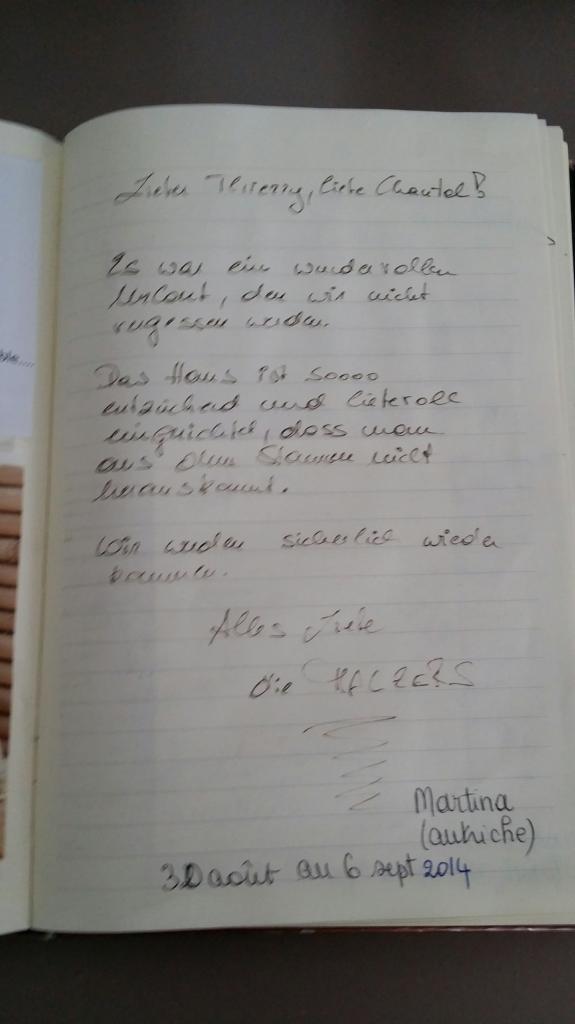 Lieber Thierry, liebe Chantal!
Es war ein wundervoller
Urlaut, den wir nicht
vergessen werden.
Das Haus ist soooo
entzückend und liebevoll
eingerichtet, dass man
aus dem Staunen nicht
herauskommt.
Wir werden sicherlich wieder
kommen.
Alles Liebe
Die
Martina
(autriche)
août au 6 sept 2014